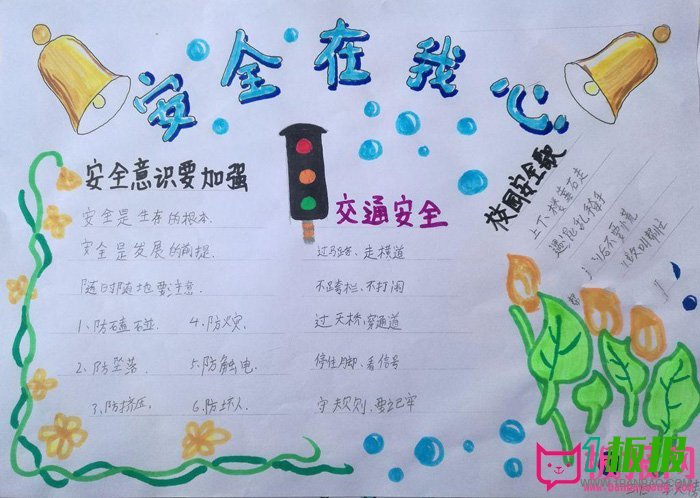 安全在我心
安全意识要加强
安全是生存的根本.
安全是发展的前提.
随时随地要注意.
1、防磕碰 4、防火灾
2、防坠落 5、防触电.
3、防挤压. 6、防坏人
交通安全
过马路、走横道
不跨栏、不打闹
过天桥、穿通道
停住脚、看信号
守规则、要记牢
校园安全歌
上下楼靠右走
遇混乱